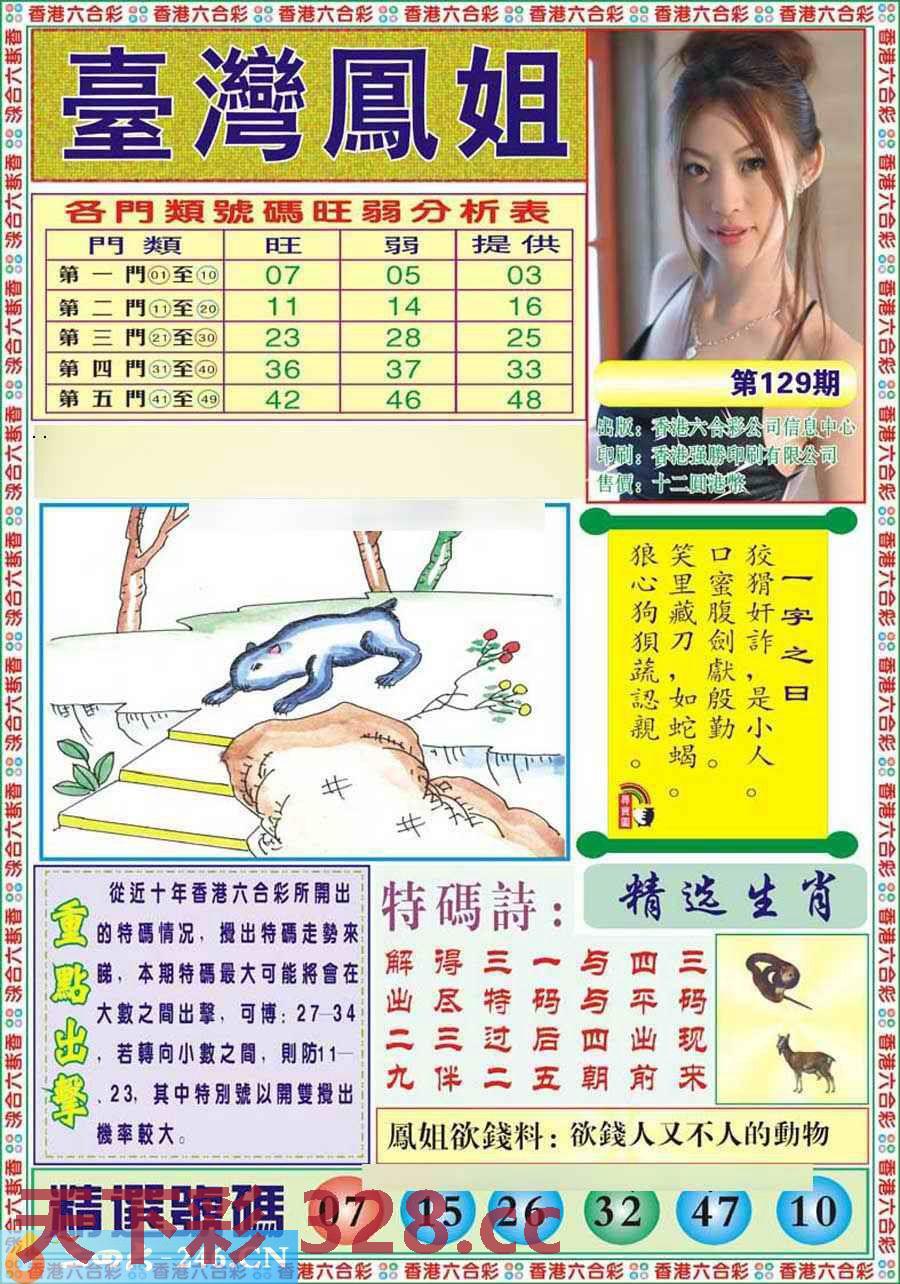 香港六合彩 香港六合彩 香港六合彩 香港六合彩 香港六合彩 香港六合彩 香港六合彩
臺灣鳳姐
各門類號碼旺弱分析表
門類 旺 弱 提供
第一門01至10 07 05 03
第二門11至20 11 14 16
第三門21至30 23 28 25
第四門31至40 36 37 33
第五門41至49 42 46 48
第129期
出版：香港六合彩公司信息中心
印刷：香港强勝印刷有限公司
售價：十二圓港幣
一字之曰
狡猾奸詐，是小人。
口蜜腹劍獻殷勤。
笑里藏刀，如蛇蝎。
狼心狗狽蔬認親。
尋寶圖
重點出擊
從近十年香港六合彩所開出
的特碼情况，攪出特碼走勢來
睇，本期特碼最大可能將會在
大數之間出擊，可博：27—34
，若轉向小數之間，則防11—
、23，其中特別號以開雙攪出
機率較大。
特碼詩：
三码现来
四平出前
与与四朝
一码后五
三特过二
得尽三伴
解出二九
精选生肖
鳳姐欲錢料：欲錢人又不人的動物
精選號碼 07 15 26 32 47 10
天下彩 328.cc
-246.CN
香港六合彩 香港六合彩 香港六合彩 香港六合彩 香港六合彩 香港六合彩 香港六合彩